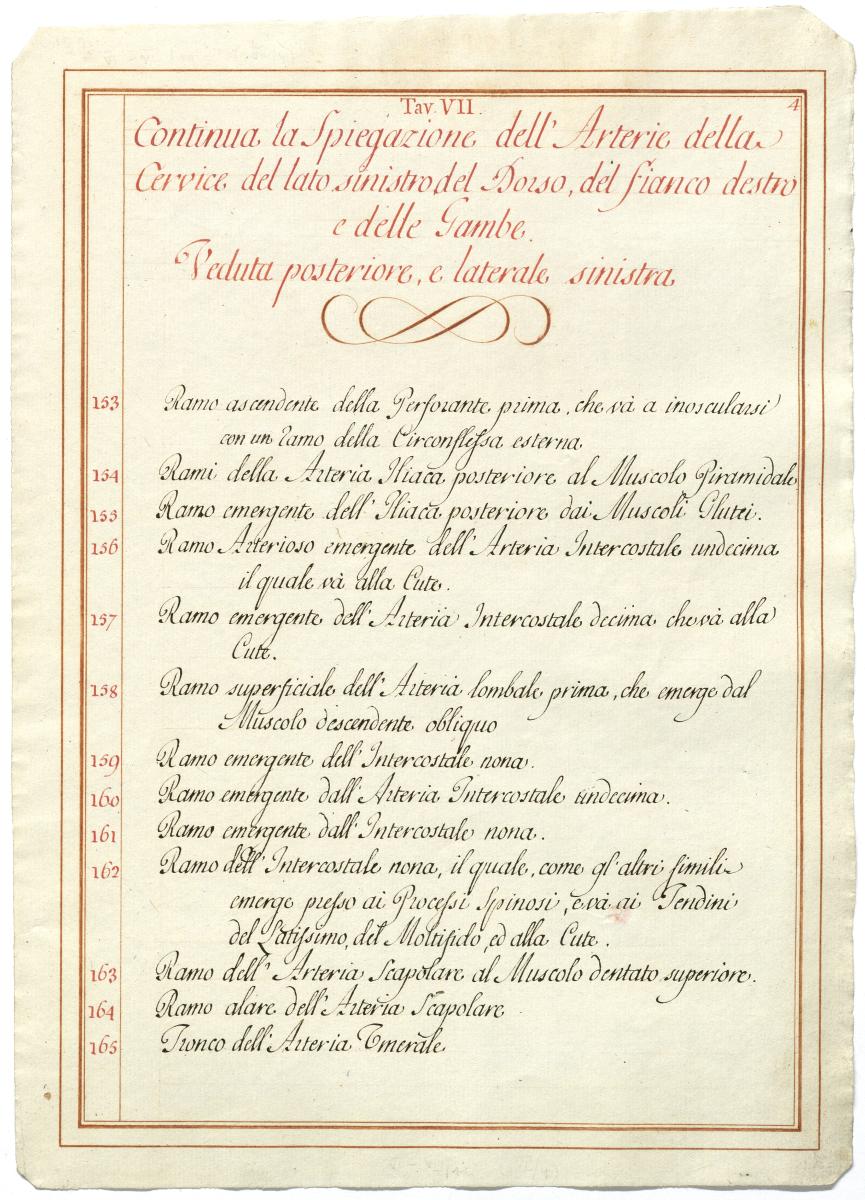 Tav. VII. 4
Continua la Spiegazione dell' Arterie della
Cervice del lato sinistro, del Dorso, del fianco destro
e delle Gambe.
Veduta posteriore, e laterale sinistra
153 Ramo ascendente della Perforante prima, che và a inoscularsi
con un ramo della Circonflessa esterna
154 Rami della Arteria Iliaca posteriore al Muscolo Piramidale
155 Ramo emergente dell' Iliaca posteriore dai Muscoli Glutei.
156 Ramo Arterioso emergente dell' Arteria Intercostale undecima
il quale và alla Cute.
157 Ramo emergente dell' Arteria Intercostale decima che và alla
Cute.
158 Ramo superficiale dell' Arteria lombale prima, che emerge dal
Muscolo descendente obliquo
159 Ramo emergente dell' Intercostale nona.
160 Ramo emergente dall' Arteria Intercostale undecima.
161 Ramo emergente dall' Intercostale nona.
162 Ramo dell' Intercostale nona, il quale, come gl' altri simili
emerge presso ai Processi Spinosi, e và ai Tendini
del Latissimo, del Moltifido, ed alla Cute.
163 Ramo dell' Arteria Scapolare al Muscolo dentato superiore.
164 Ramo alare dell' Arteria Scapolare
165 Tronco dell' Arteria Umerale